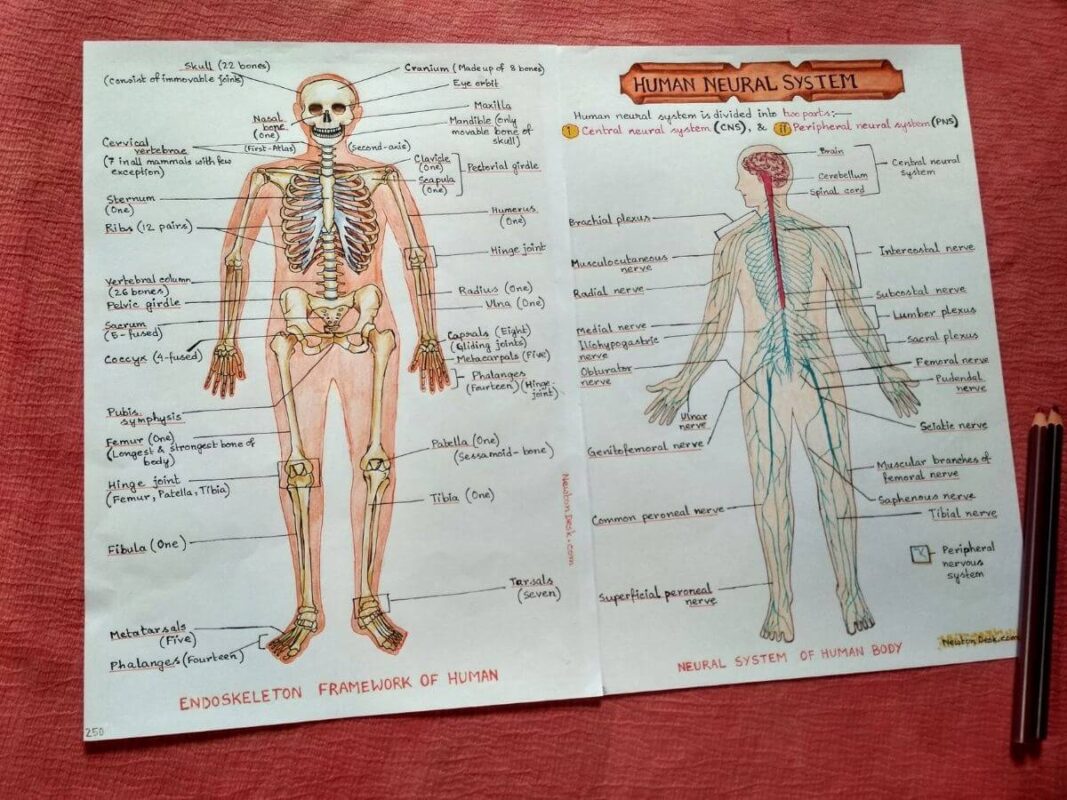 Skull (22 bones)
(consist of immovable joints)
Cranium (Made up of 8 bones)
Eye orbit
Maxilla
Nasal
bone
(One)
Mandible (only
movable bone of
skull)
Cervical
vertebrae
(7 in all mammals with few
exception)
(First-Atlas)
(second-axis)
Clavicle
(One)
Scapula
(One)
Pectorial girdle
Sternum
(One)
Ribs (12 pairs)
Humerus
(One)
Hinge joint
Vertebral column
(26 bones)
Pelvic girdle
Radius (One)
Ulna (One)
Sacrum
(5-fused)
Coccyx (4-fused)
Capsals (Eight)
(Gliding joints)
Metacarpals (Five)
Phalanges
(Fourteen) (Hinge
joint)
Pubis
symphysis
Femur (One)
(Longest & strongest bone of
body)
Patella (One)
(Sessamoid-bone)
Hinge joint
(Femur, Patella, Tibia)
Tibia (One)
Fibula (One)
Tarsals
(Seven)
Metatarsals
(Five)
Phalanges (Fourteen)
ENDOSKELETON FRAMEWORK OF HUMAN
250
NewtonDesk.com
HUMAN NEURAL SYSTEM
Human neural system is divided into two parts:—
i Central neural system (CNS), & ii Peripheral neural system (PNS)
Brain
Cerebellum
Spinal cord
Central neural
system
Brachial plexus
Musculocutaneous
nerve
Radial nerve
Intercostal nerve
Subcostal nerve
Lumber plexus
Medial nerve
Iliohypogastric
nerve
Obturator
nerve
Sacral plexus
Femoral nerve
Pudendal
nerve
Ulnar
nerve
Sciatic nerve
Genitofemoral nerve
Muscular branches of
femoral nerve
Saphenous nerve
Tibial nerve
Common peroneal nerve
Peripheral
nervous
system
Superficial peroneal
nerve
NewtonDesk.com
NEURAL SYSTEM OF HUMAN BODY